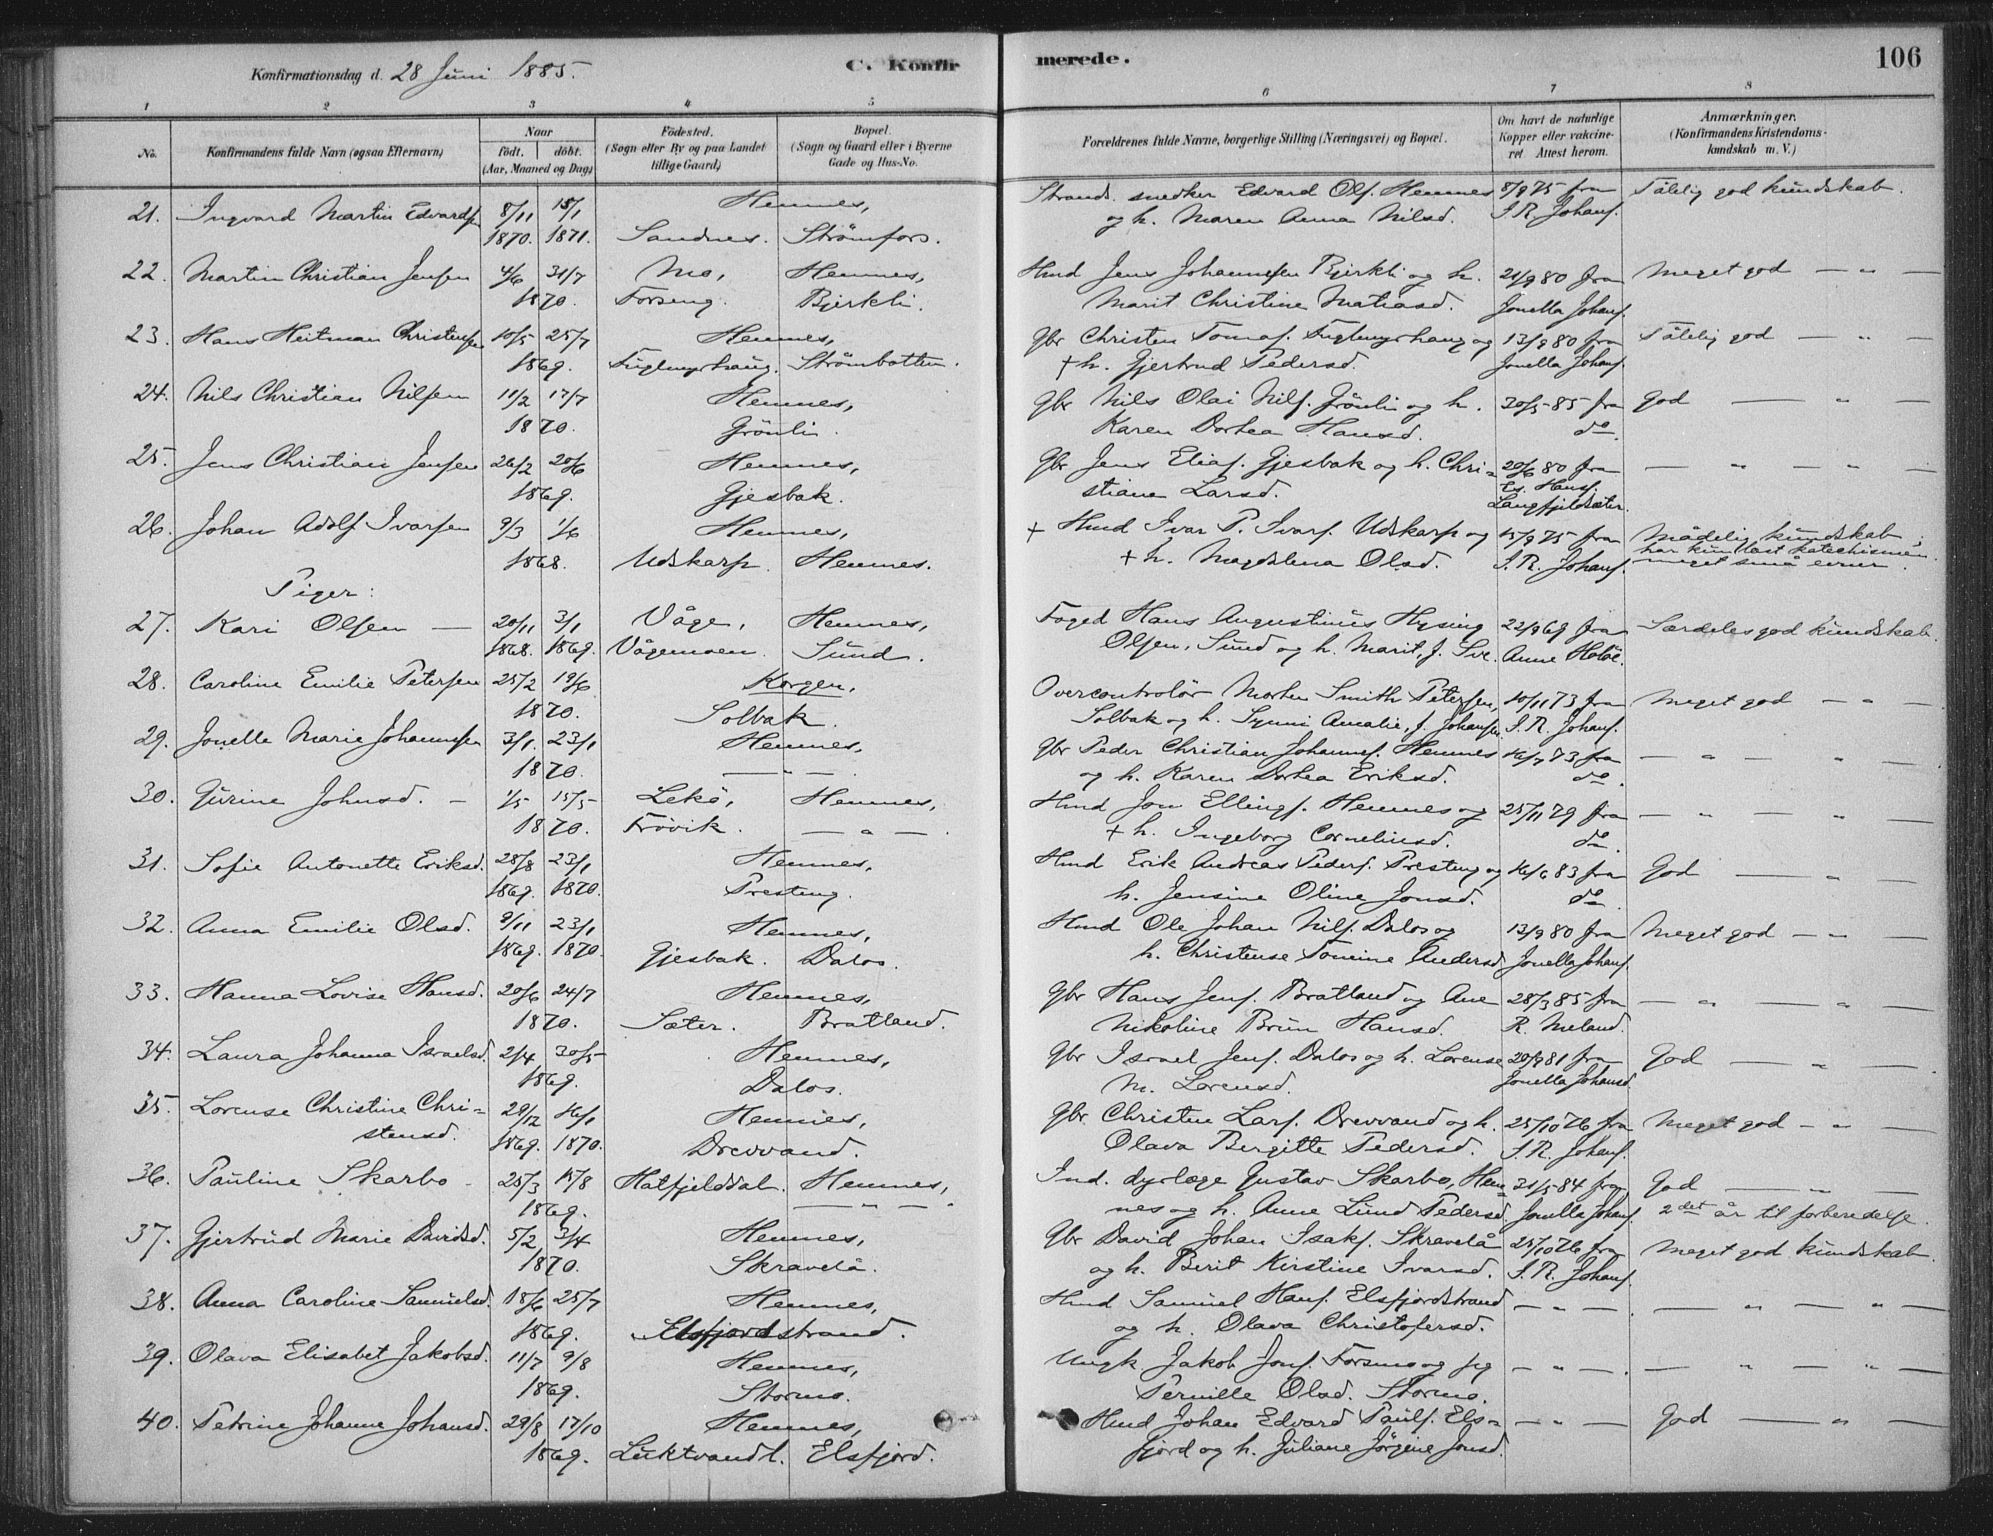 Konfirmationsdag d. 28 Juni 1885.
C. Konfir
merede.
106
1 2 3 4 5 6 7 8
No.
Konfirmandens fulde Navn (ogsaa Efternavn)
Naar
født. døbt.
(Aar, Maaned og Dag)
Födested.
(Sogn eller By og paa Landet
tillige Gaard)
Bopæl.
(Sogn og Gaard eller i Byerne
Gade og Hus-No.
Forældrenes fulde Navne, borgerlige Stilling (Næringsvei) og Bopæl.
Om havt de naturlige
Kopper eller vakcine-
ret. Attest herom.
Anmærkninger.
(Konfirmandens Kristendoms-
kundskab m. V.)
21. Ingvard Martin Edvards. 8/11 15/1 Hemnes, Strands. snedker Edvard Ols. Hemnes 8/9 75 fra Tålelig god kundskab.
1870. 1871. Sandnes. Strømfors. og h. Maren Anna Nilsd. I. R. Johans.
22. Martin Christian Jensen 4/6 31/7 Mo, Hemnes, Hmd Jens Johannesen Bjerkli og h. 21/9 80 fra Meget god — „ —
1870. Forseng. Bjerkli. Marit Christine Matiasd. Jonella Johans.
23. Hans Heitman Christensen 10/5 25/7 Hemnes, Gbr Christen Tomas. Fuglmyrhaug og 13/9 80 fra Tålelig god — „ —
1869. Fuglmyrhaug. Strømbotten. + h. Gjertrud Pedersd. Jonella Johans.
24. Nils Christian Nilsen 11/2 17/7 Hemnes, Gbr Nils Olai Nils. Grönlin og h. 30/5 85 fra God — „ —
1870. Grönlin. Karen Dorhea Hansd. do.
25. Jens Christian Jensen 26/2 20/6 Hemnes, Gbr Jens Elias. Gjesbak og h. Chri- 20/6 80 fra — „ — „ —
1869. Gjesbak. stiane Larsd. Es. Hans.
Langfjeldsæter.
26. Johan Adolf Ivarsen 9/3 1/6 Hemnes, + Hmd Ivar P. Ivars. Udskarp og 15/9 75 fra Mådelig kundskab;
1868. Udskarp. Hemnes. + h. Magdalena Olsd. I. R. Johans. har kun læst katechismen
meget små evner.
Piger:
27. Kari Olsen — 20/11 3/1 Våge, Hemnes, Foged Hans Augustinus Hysing 22/9 69 fra Særdeles god kundskab.
1868. 1869. Vågemoen. Sund. Olsen, Sund og h. Marit, f. Sve. Anne Holöe.
28. Caroline Emilie Petersen 25/2 19/6 Korgen, Overcontrolör Morten Smith Petersen, 10/11 73 fra Meget god — „ —
1870. Solbak. Solbak og h. Synni Amalie, f. Johansen. I. R. Johans.
29. Jonelle Marie Johannesen 3/1. 23/1 Hemnes, Gbr Peder Christian Johannes. Hemnes 16/7 73 fra — „ — „ —
1870. — „ — og h. Karen Dorhea Eriksd. do.
30. Gurine Johnsd. — 1/5 15/5 Lekö, Hemnes, Hmd Jon Ellings. Hemnes og 25/11 79 fra — „ — „ —
1870. Frövik. — „ — + h. Ingeborg Corneliusd. do.
31. Sofie Antonette Eriksd. 28/8 23/1 Hemnes, Hmd Erik Andreas Peders. Presteng og 16/6 83 fra God — „ —
1869. 1870. Presteng. h. Jensine Oline Jonsd. do.
32. Anna Emilie Olsd. 9/11 23/1 Hemnes, Hmd Ole Johan Nils. Dalos og 13/9 80 fra Meget god — „ —
1869. 1870. Gjesbak. Dalos. h. Christense Tomine Andersd. Jonella Johans.
33. Hanna Lovise Hansd. 20/6 24/7 Hemnes, Gbr Hans Jens. Bratland og Ane 28/3 85 fra — „ — „ —
1870. Sæter. Bratland. Nikoline Brun Hansd. R. Meland.
34. Laura Johanna Israelsd. 2/4 30/5 Hemnes, Gbr Israel Jens. Dalos og h. Lorense 20/9 81 fra God — „ —
1869. Dalos. M. Lorensd. Jonella Johansd.
35. Lorense Christine Chri- 29/12 16/1 Hemnes, Gbr Christen Lars. Drevvand og h. 25/10 76 fra Meget god — „ —
stensd. 1869. 1870. Drevvand. Olava Bergitte Pedersd. I. R. Johans.
36. Pauline Skarbo — 25/3 15/8 Hatfjelddal. Hemnes, Ind. dyrlæge Gustav Skarbo, Hem- 31/5 84 fra God — „ —
1869. — „ — nes og h. Anne Lund Pedersd. Jonella Johans. 2det år til forberedelse.
37. Gjertrud Marie Davidsd. 5/2 3/4 Hemnes, Gbr David Johan Isaks. Skravelå 25/10 76 fra Meget god kundskab
1870. Skravelå. og h. Berit Kirstine Ivarsd. I. R. Johans.
38. Anna Caroline Samuelsd. 18/6 25/7 Hemnes, Hmd Samuel Hans. Elsfjordstrand — „ — . — „ — „ —
1869. Elsfjordstrand. og h. Olava Christofersd.
39. Olava Elisabet Jakobsd. 11/7 9/8 Hemnes, Ungk Jakob Jons. Forsmo og pig — „ — . — „ — „ —
1869. Stormo. Pernille Olsd. Stormo.
40. Petrine Johanne Johansd. 29/8 17/10 Hemnes, Hmd Johan Edvard Pauls. Els- — „ — God — „ —
1869. Luktvandl. Elsfjord. fjord og h. Juliane Jörgine Jonsd.